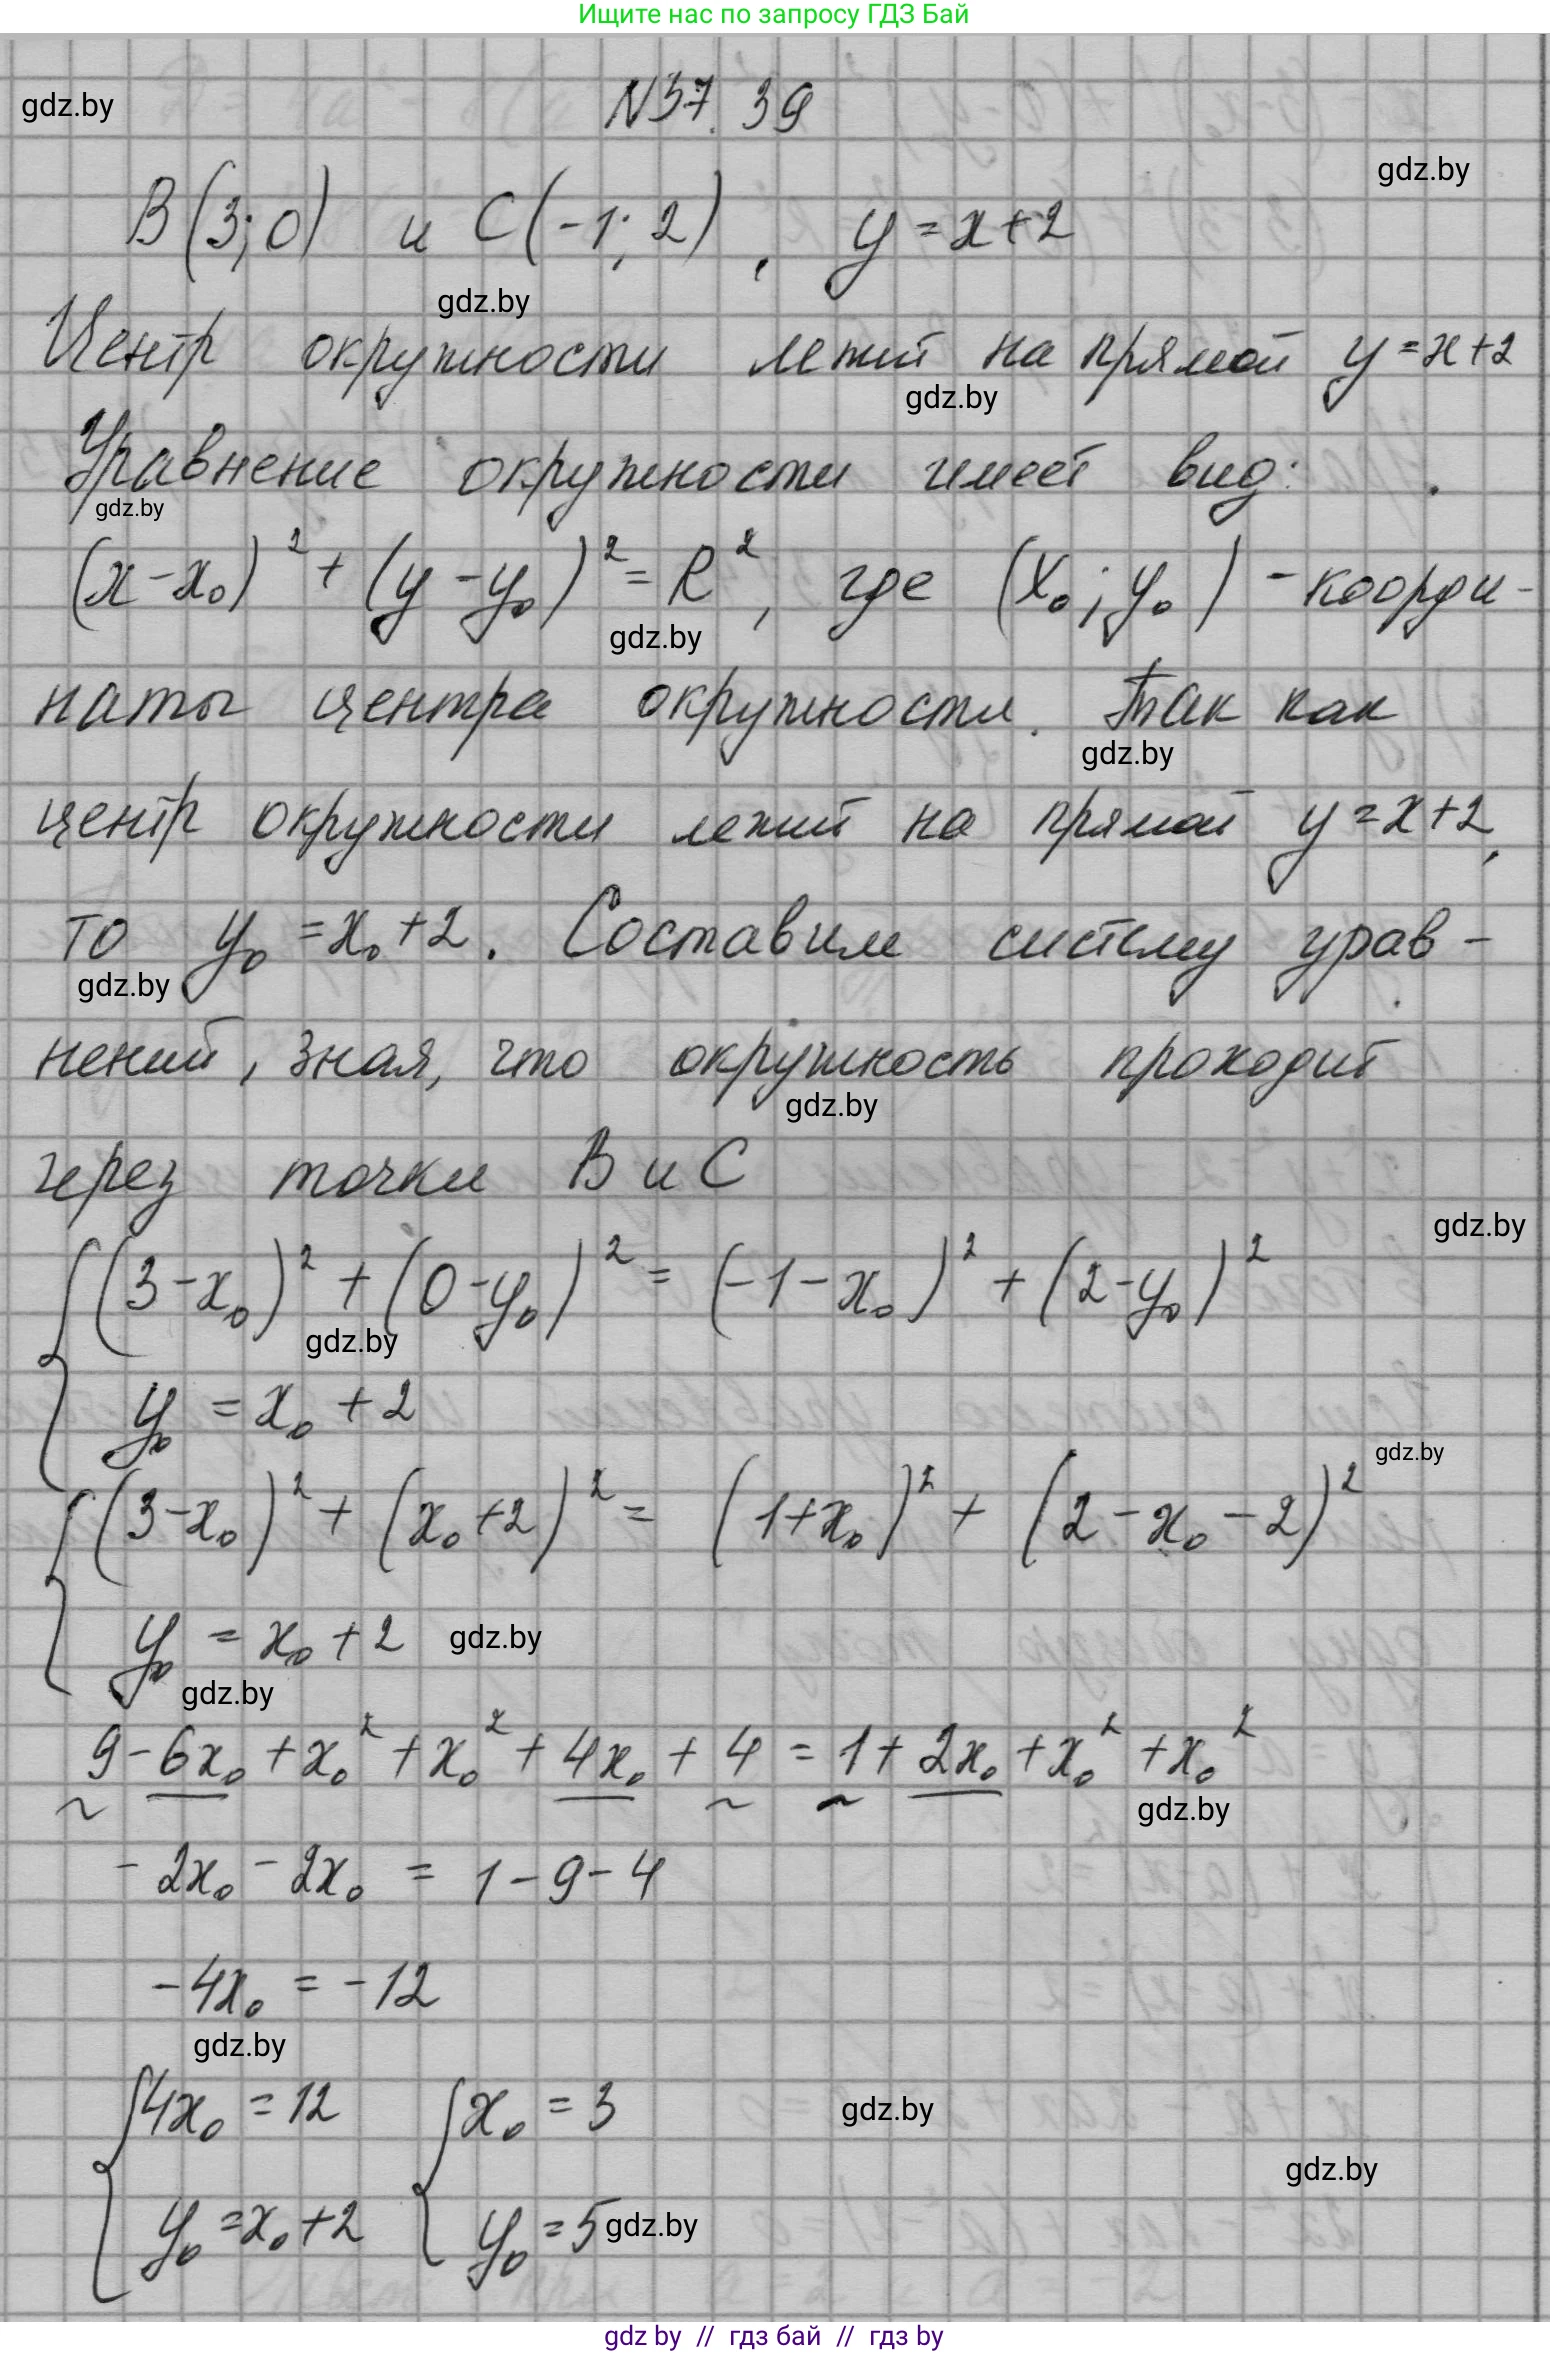 Ищите нас по запросу ГДЗ Бай
N37.39
gdz.by
gdz.by
B(3;0) и C(-1;2), y=x+2
gdz.by
Центр окружности лежит на прямой y=x+2
gdz.by
Уравнение окружности имеет вид:
gdz.by
(x-x₀)²+(y-y₀)²=R², где (x₀;y₀)-коорди-
gdz.by
наты центра окружности. Так как
gdz.by
центр окружности лежит на прямой y=x+2,
то y₀=x₀+2. Составим систему урав-
gdz.by
нений, зная, что окружность проходит
gdz.by
через точки B и C
gdz.by
(3-x₀)²+(0-y₀)²=(-1-x₀)²+(2-y₀)²
gdz.by
y₀=x₀+2
gdz.by
(3-x₀)²+(x₀+2)²=(1+x₀)²+(2-x₀-2)²
y₀=x₀+2 gdz.by
gdz.by
9-6x₀+x₀²+x₀²+4x₀+4=1+2x₀+x₀²+x₀²
gdz.by
-2x₀-2x₀=1-9-4
-4x₀=-12
gdz.by
4x₀=12 x₀=3 gdz.by
gdz.by
y₀=x₀+2 y₀=5 gdz.by
gdz by // гдз бай // гдз by